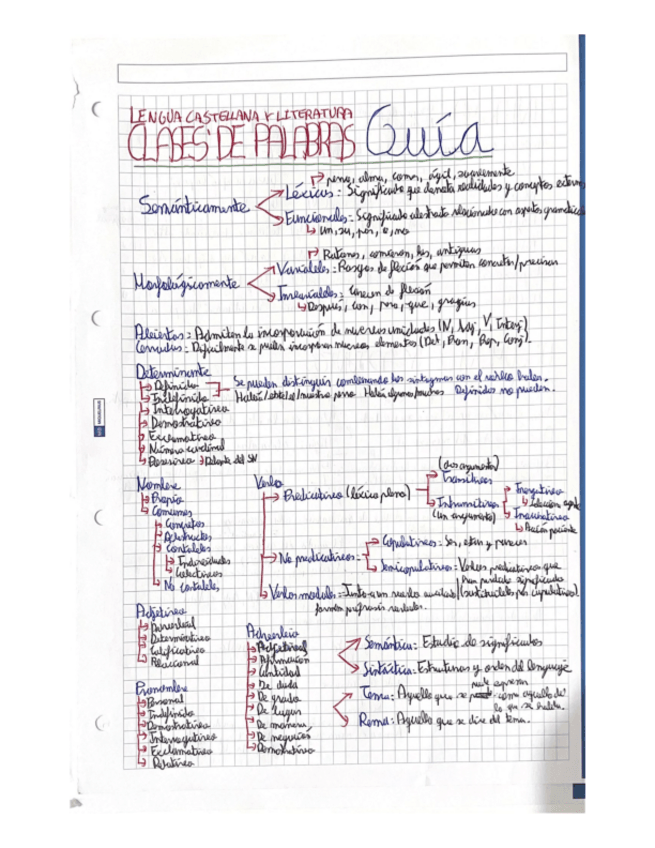 LENGUA CASTELLANA Y LITERATURA
CLASES DE PALABRAS Guía
pena, alma, comer, ágil, suavemente
Semánticamente
Léxicas: Significado que denota realidades y conceptos extern
Funcionales: Significado abstracto relacionado con aspectos gramatical
un, su, por, e, no
Ratones, comieron, los, antiguas
Morfológicamente
Variables: Rasgos de flexión que permiten concretar/precisar
Invariables: Carecen de flexión
Después, con, pero, que, gracias
Abiertas: Admiten la incorporación de nuevas unidades (N, Adj, V, Interj)
Cerradas: Difícilmente se pueden incorporar nuevos elementos (Det, Pron, Prep, Conj).
Determinante
Definido
Indefinido
Se pueden distinguir combinando los sintagmas con el verbo haber.
Había perro Había algunos/muchos Definidos no pueden.
Interrogativo
Demostrativo
Exclamativo
Número cardinal
Posesivo Delante del SN
Nombre
Propio
Comunes
Concretos
Abstractos
Contables
Individuales
Colectivos
No contables
Verbo
Predicativo (léxico pleno)
(dos argumentos)
Transitivos
Intransitivos
(un argumento)
Inergativo
Inacusativo
No predicativos
Copulativos: Ser, estar y parecer
Semicopulativos: Verbos predicativos que
han perdido significado
(sustituibles por copulativos)
Verbos modales: Junto a un verbo auxiliar
forman perífrasis verbales.
Adjetivo
Adverbial
Determinativo
Calificativo
Relacional
Pronombre
Personal
Indefinido
Demostrativo
Interrogativo
Exclamativo
Relativo
Adverbio
Adjetival
Afirmación
Cantidad
De duda
De grado
De lugar
De manera
De negación
Demostrativo
Semántica: Estudio de significados
Sintáctica: Estructuras y orden del lenguaje
Tema: Aquello que se puede expresar como aquello de
lo que se habla.
Rema: Aquello que se dice del tema.